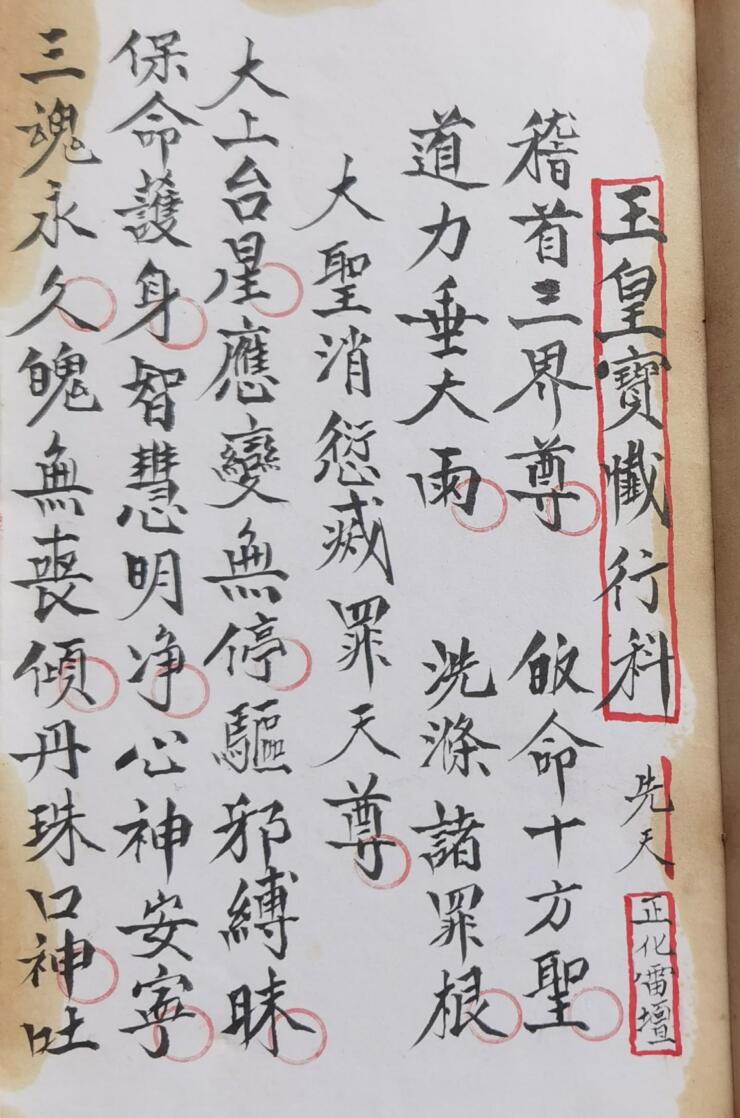 玉皇寶懺行科 先天 正化雷壇
稽首三界尊 皈命十方聖
道力垂大雨 洗滌諸罪根
大聖消愆滅罪天尊
大上台星應變無停驅邪縛昧
保命護身智慧明净心神安寧
三魂永久魄無喪傾丹珠口神吐